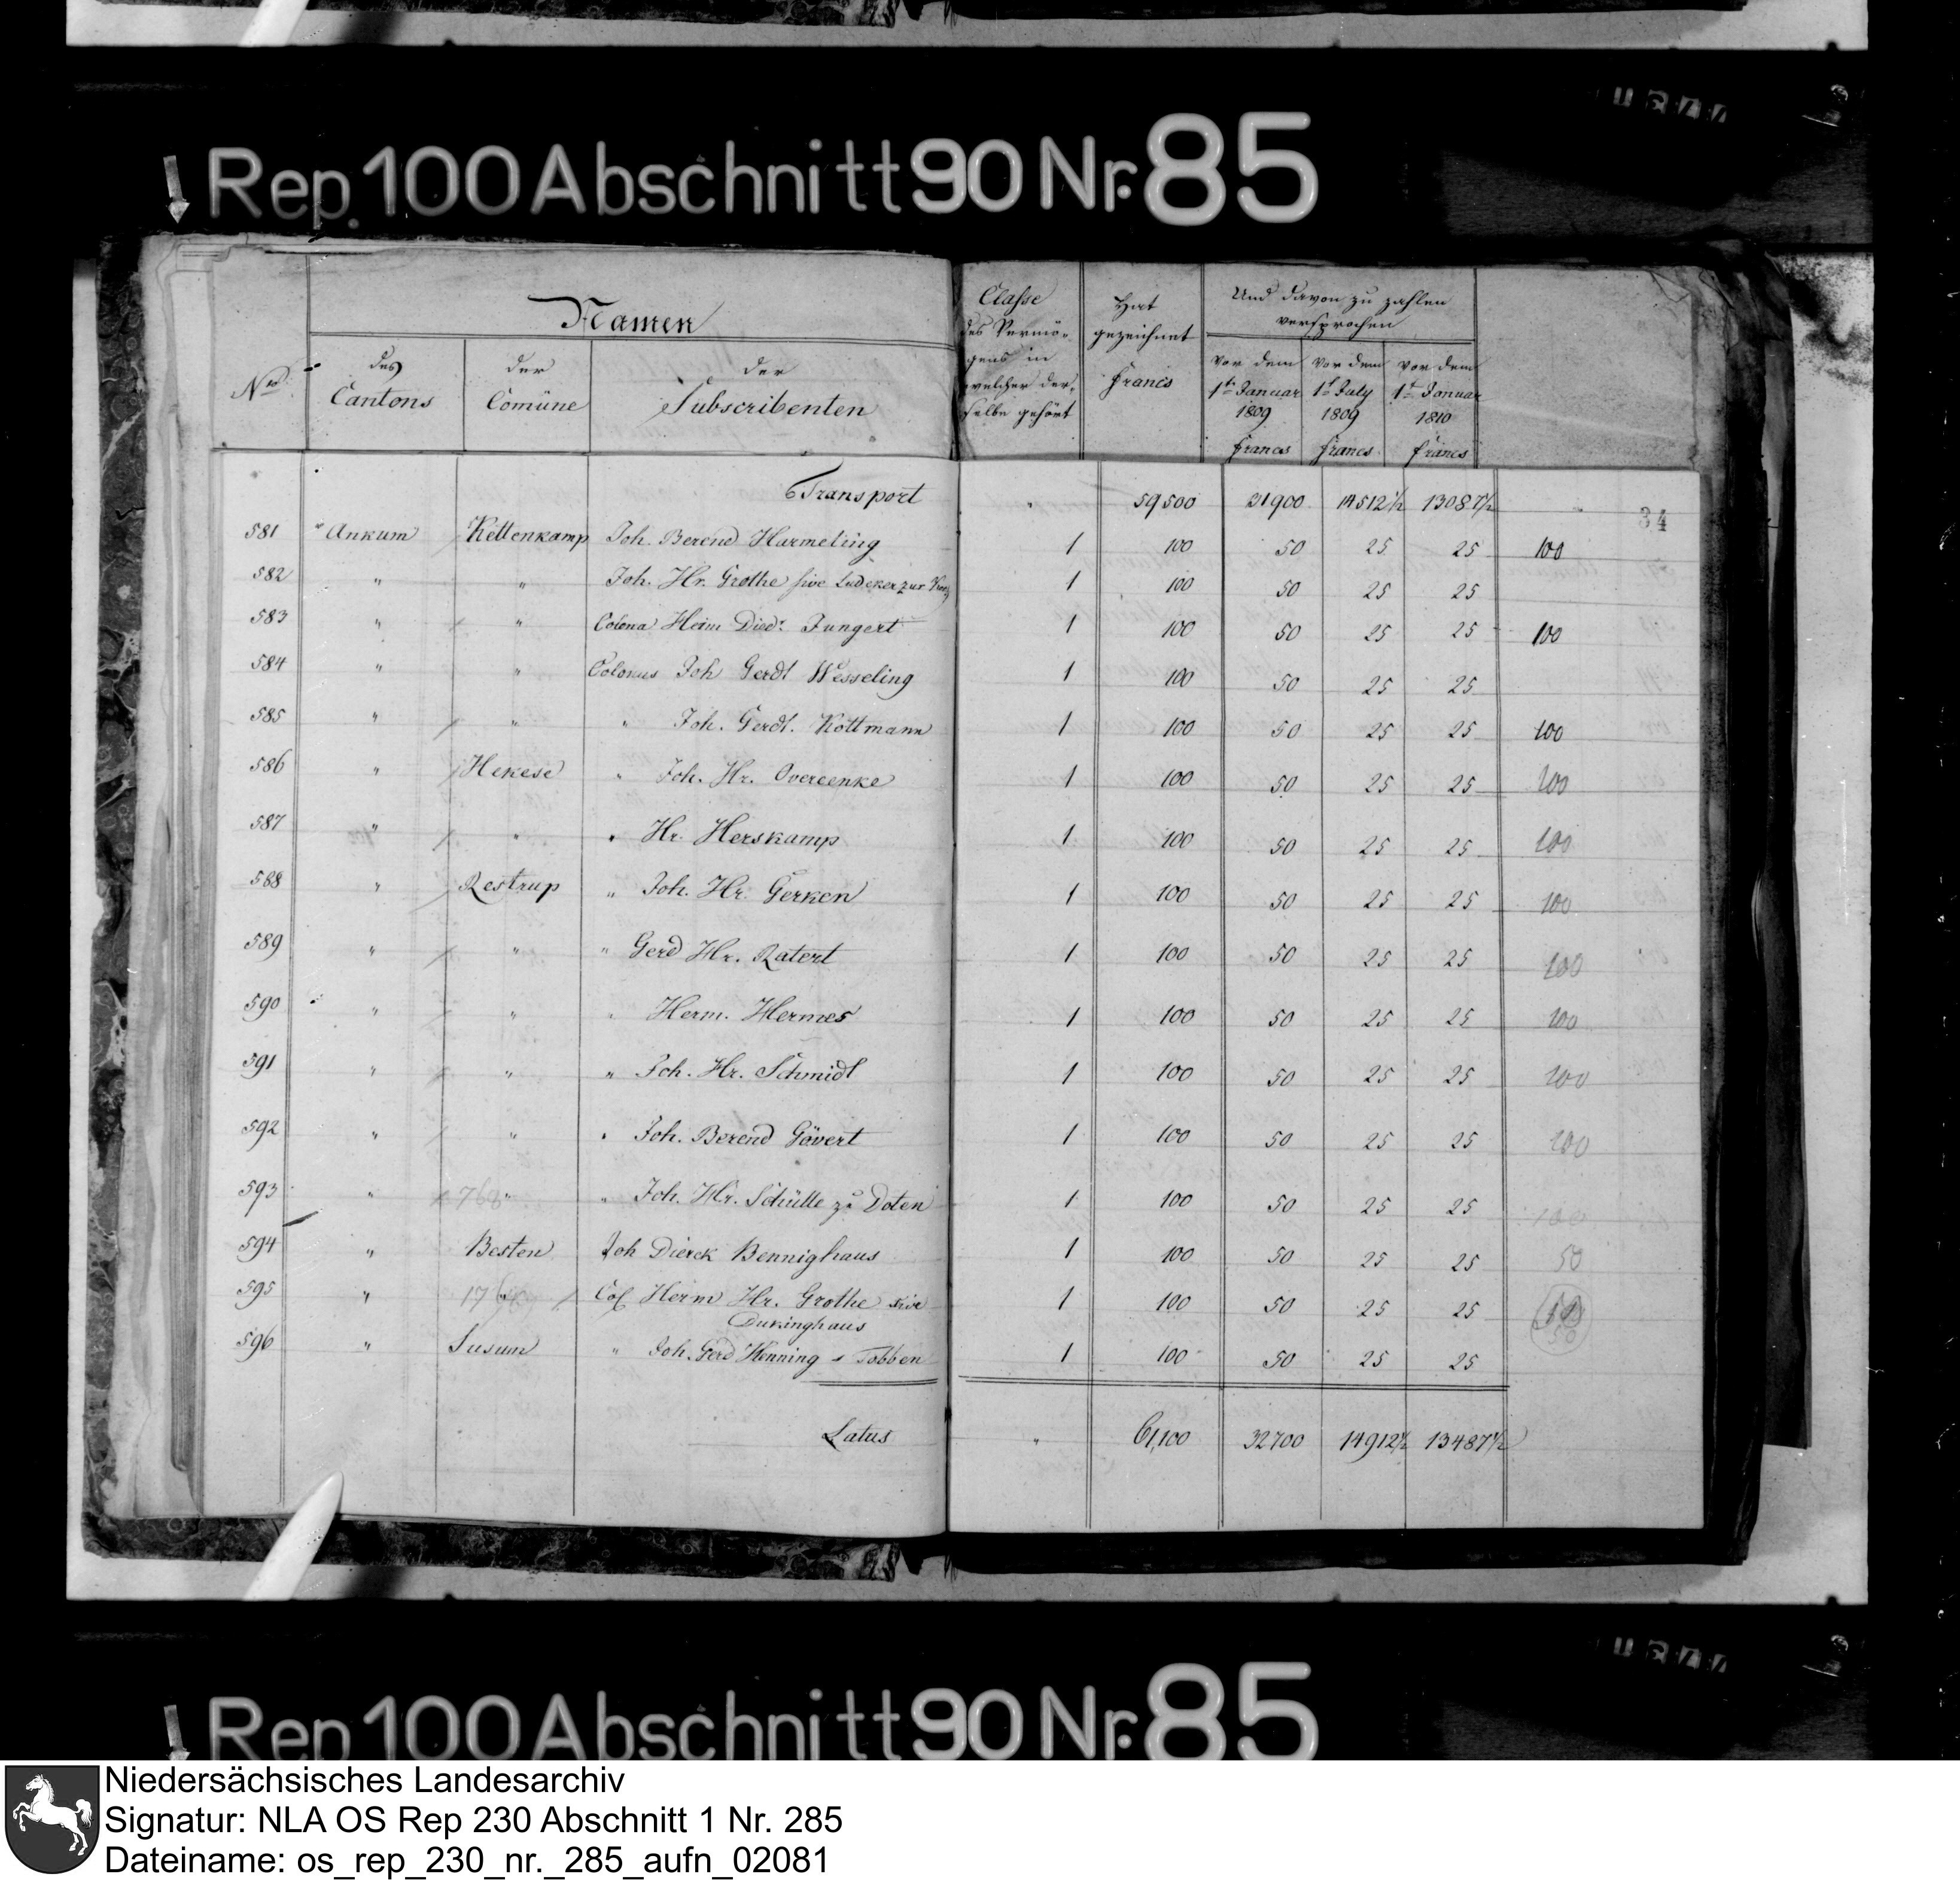 Rep. 100 Abschnitt 90 Nr. 85
Namen
No. des Cantons der Comüne der Subscribenten
Classe des Vermögens in welcher derselbe gehört
Hat gezeichnet Francs
Und davon zu zahlen versprochen
vor dem 1t Januar 1809 Francs
vor dem 1t July 1809 Francs
vor dem 1t Januar 1810 Francs
34
Transport " 59500 31900 14512½ 13087½
581 " Ankum Kettenkamp Joh. Berend Harmeling 1 100 50 25 25 100
582 " " Joh. Hr. Grothe sive Ludeker zur 1 100 50 25 25
583 " " Colona Heim Died. Jungert 1 100 50 25 25 100
584 " " Colonus Joh Gerdt Wesseling 1 100 50 25 25
585 " " " Joh. Gerdt. Kottmann 1 100 50 25 25 100
586 " Hekese " Joh. Hr. Overeenke 1 100 50 25 25 100
587 " " " Hr. Herskamp 1 100 50 25 25 100
588 " Restrup " Joh. Hr. Gerken 1 100 50 25 25 100
589 " " " Gerd Hr. Ratert 1 100 50 25 25 100
590 " " " Herm. Hermes 1 100 50 25 25 100
591 " " " Joh. Hr. Schmidt 1 100 50 25 25 100
592 " " " Joh. Berend Gövert 1 100 50 25 25 100
593 " " " Joh. Hr. Schütte zu Doten 1 100 50 25 25 100
594 " Besten Joh Dierck Bennighaus 1 100 50 25 25 50
595 " " Col Herm Hr. Grothe sive 1 100 50 25 25
Dukinghaus
596 " Susum " Joh. Gerd Henning - Tobben 1 100 50 25 25
Latus " 61,100 32700 14912½ 13487½
Rep 100 Abschnitt 90 Nr. 85
Niedersächsisches Landesarchiv
Signatur: NLA OS Rep 230 Abschnitt 1 Nr. 285
Dateiname: os_rep_230_nr._285_aufn_02081